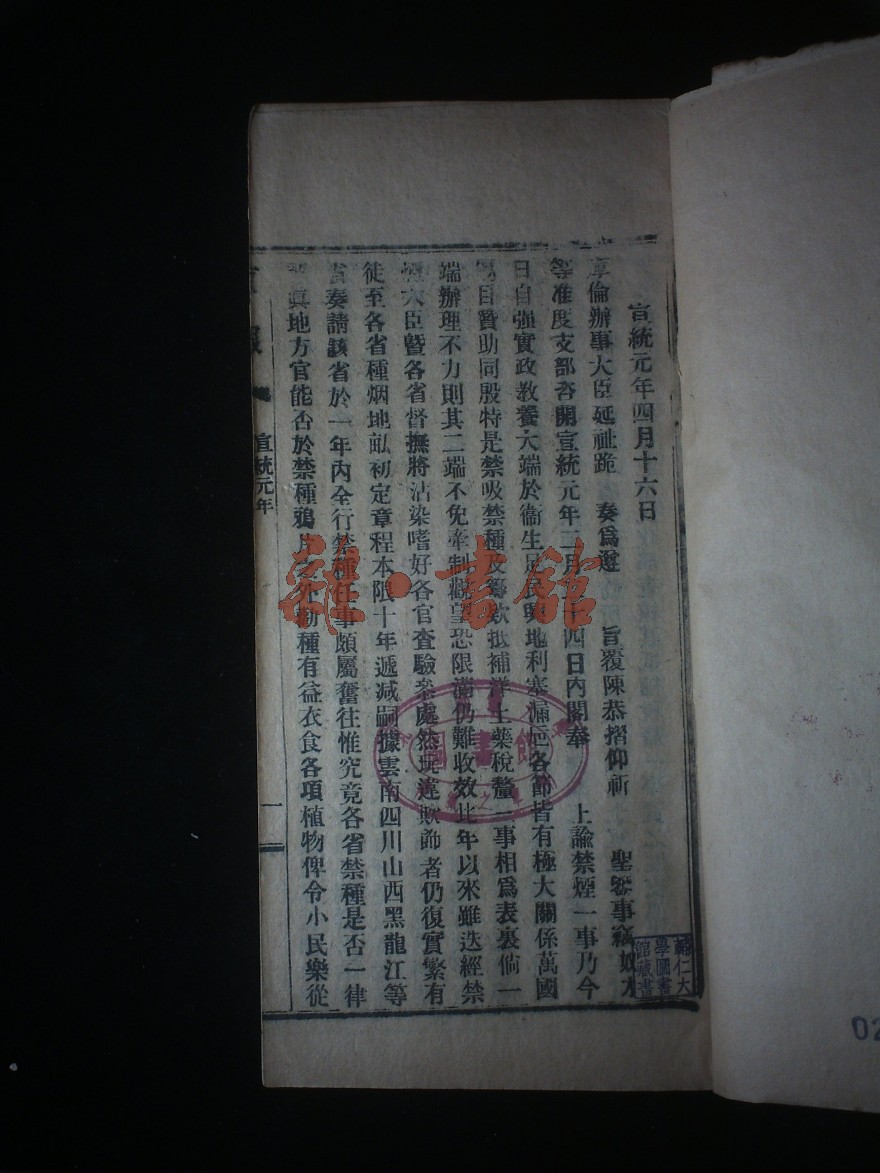 宣統元年四月十六日
庫倫辦事大臣延祉跪　奏爲遵　旨覆陳恭摺仰祈　聖鑒事竊奴才
等准度支部咨開宣統元年二月二十四日內閣奉　上諭禁煙一事乃今
日自强實政教養大端於衞生足民興地利塞漏巵各節皆有極大關係萬國
目贊助同殷特是禁吸禁種及籌欵抵補洋土藥稅釐一事相爲表裏倘一
端辦理不力則其二端不免牽制觀望恐限滿仍難收效比年以來雖迭經禁
煙大臣曁各省督撫將沾染嗜好各官查驗叅處然玩違欺飾者仍復實繁有
徒至各省種烟地畝初定章程本限十年遞減嗣據雲南四川山西黑龍江等
省奏請該省於一年內全行禁種任事頗屬奮往惟究竟各省禁種是否一律
眞地方官能否於禁種鴉片之外勸種有益衣食各項植物俾令小民樂從
報
宣統元年
一
雜·書館
圖書館
輔仁大
學圖書
館藏書
02